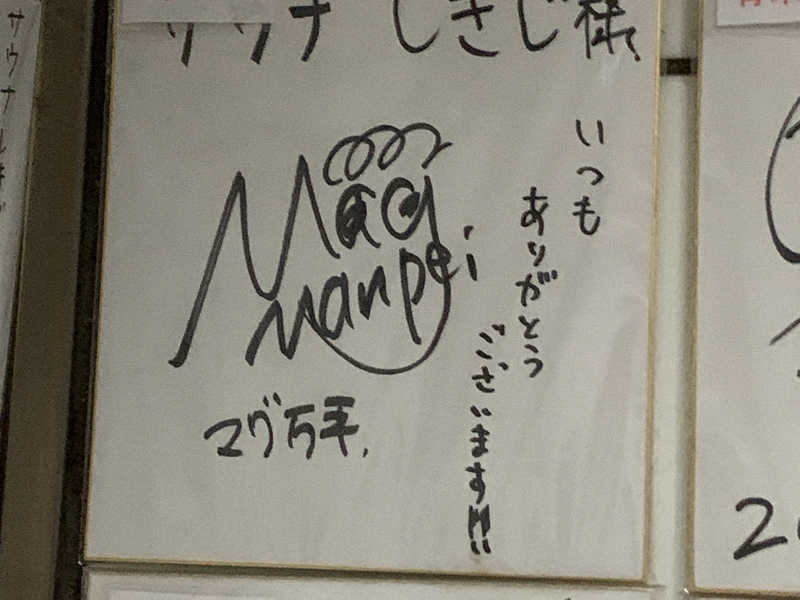 サウナ しきじ様
いつも
ありがとう
ございます!!
Mag
Manpei
マグ万平